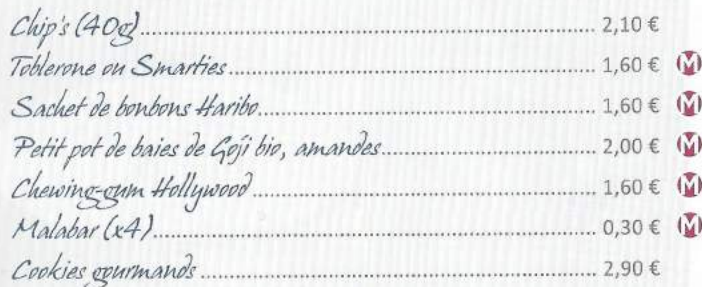 Chip's (40g) 2,10 €
Toblerone ou Smarties 1,60 € M
Sachet de bonbons Haribo 1,60 € M
Petit pot de baies de Goji bio, amandes 2,00 € M
Chewing-gum Hollywood 1,60 € M
Malabar (x4) 0,30 € M
Cookies gourmands 2,90 €